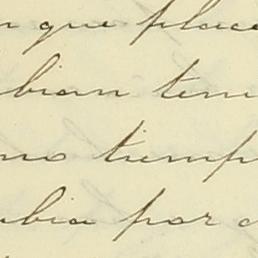 n que place
bian ten
mo tiemp
abia por